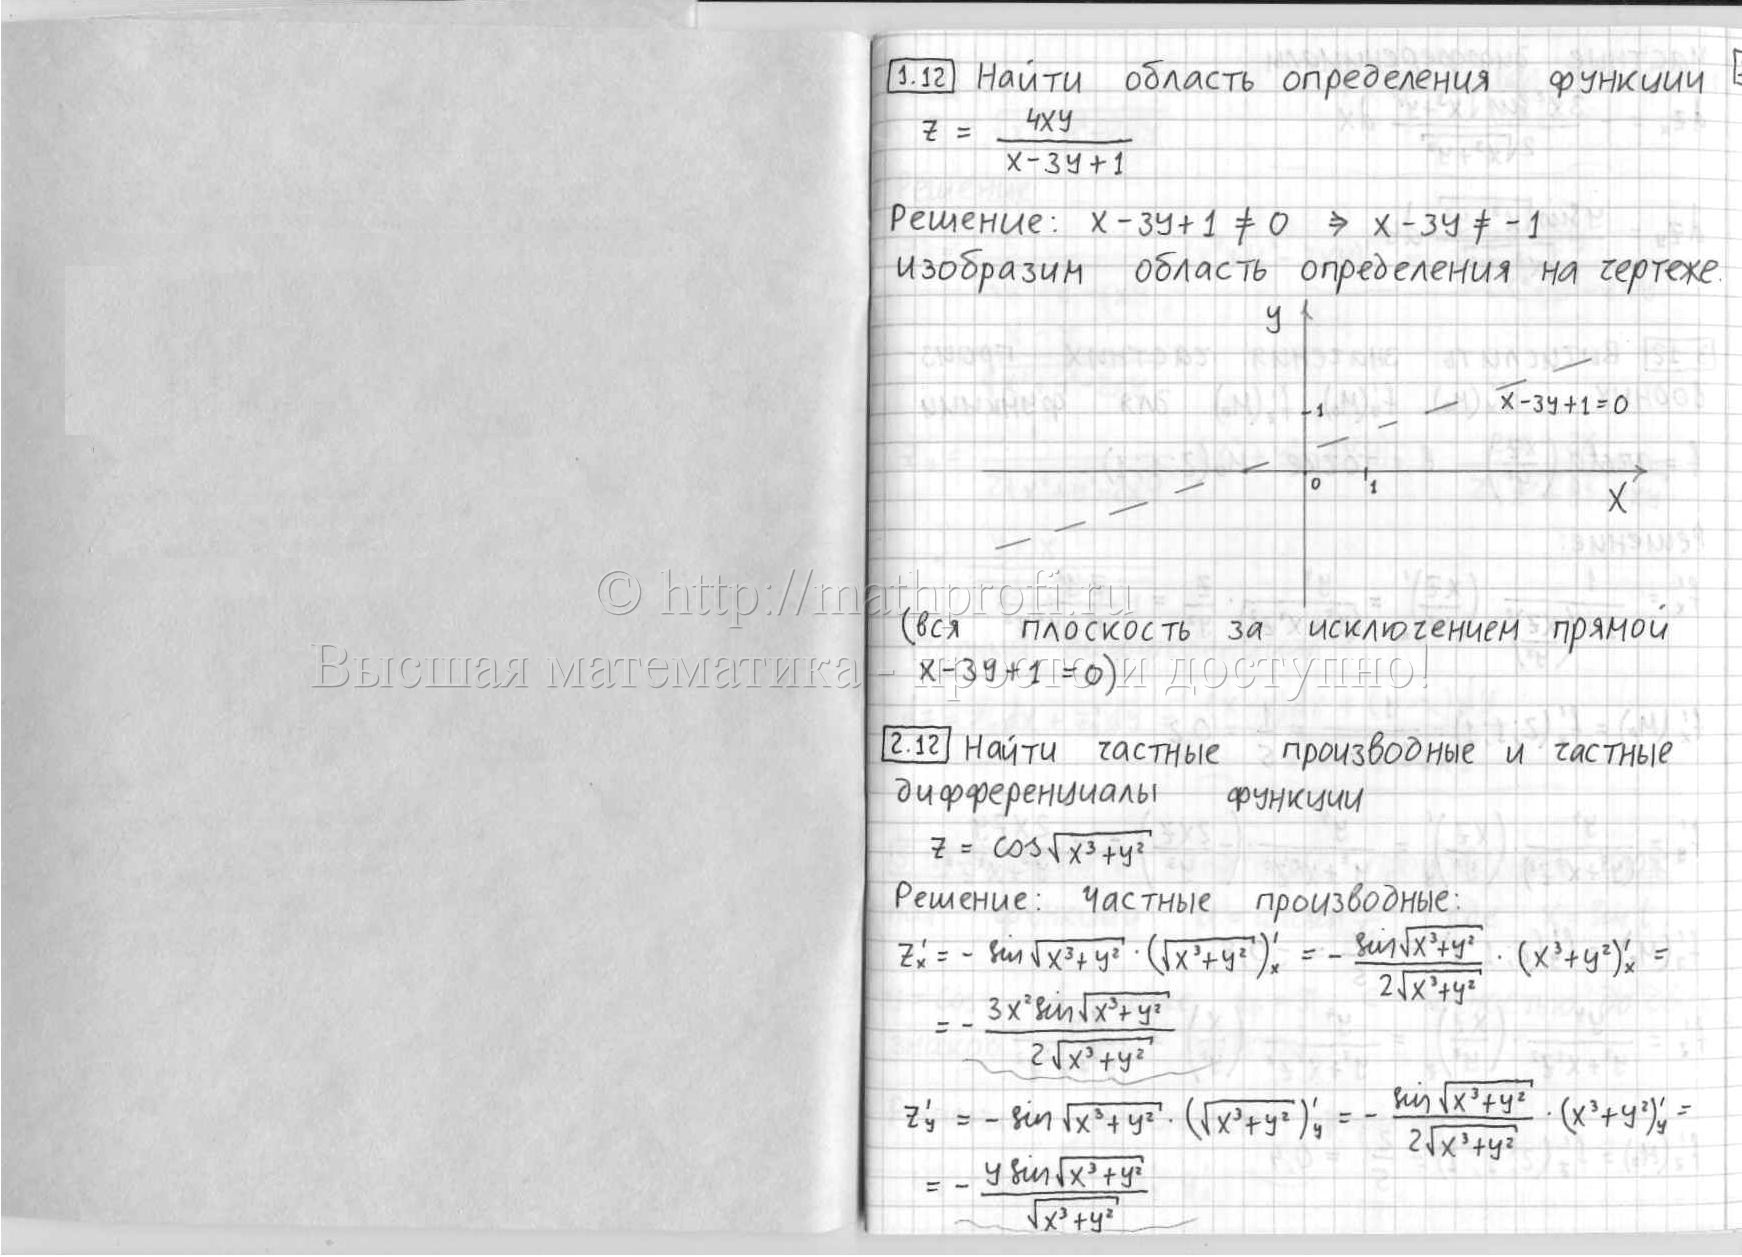 1.12 Найти область определения функции
z = 4xy / (x-3y+1)
Решение: x-3y+1 ≠ 0 ⇒ x-3y ≠ -1
изобразим область определения на чертеже.
y
x-3y+1=0
1
0 1
x
© http://mathprofi.ru
(вся плоскость за исключением прямой
Высшая математика - просто и доступно!
x-3y+1=0)
2.12 Найти частные производные и частные
дифференциалы функции
z = cos√(x³+y²)
Решение: Частные производные:
z'ₓ = - sin√(x³+y²) · (√(x³+y²))'ₓ = - sin√(x³+y²) / (2√(x³+y²)) · (x³+y²)'ₓ =
= - 3x² sin√(x³+y²) / (2√(x³+y²))
z'_y = - sin√(x³+y²) · (√(x³+y²))'_y = - sin√(x³+y²) / (2√(x³+y²)) · (x³+y²)'_y =
= - y sin√(x³+y²) / √(x³+y²)